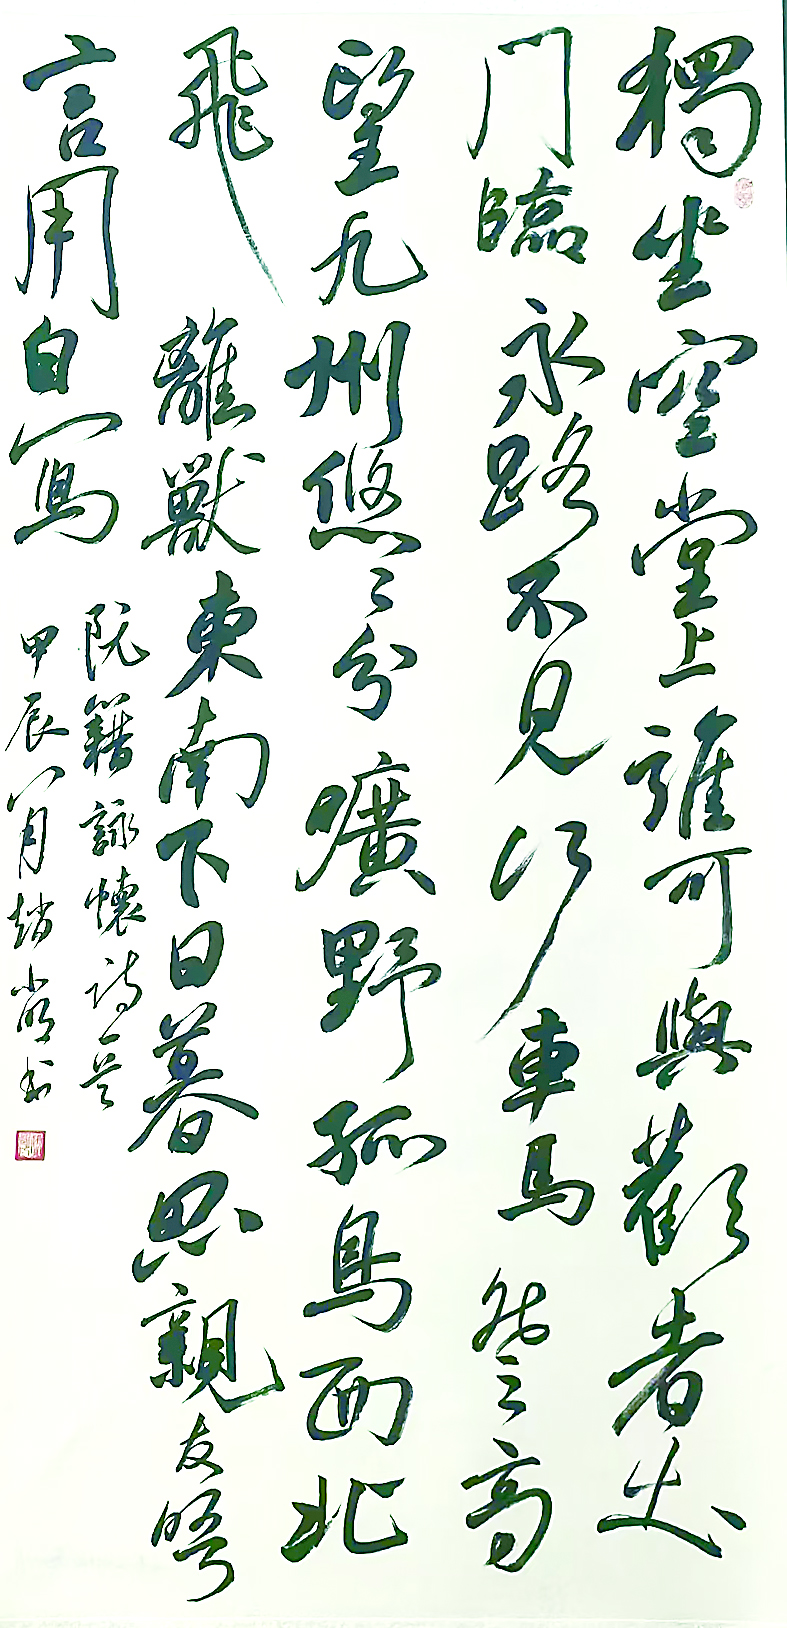 獨坐空堂上誰可與歡者出
門臨永路不見行車馬登高
望九州悠々分曠野孤鳥西北
飛離獸東南下日暮思親友晤
言用自寫
阮籍詠懷詩一首
甲辰八月趙書